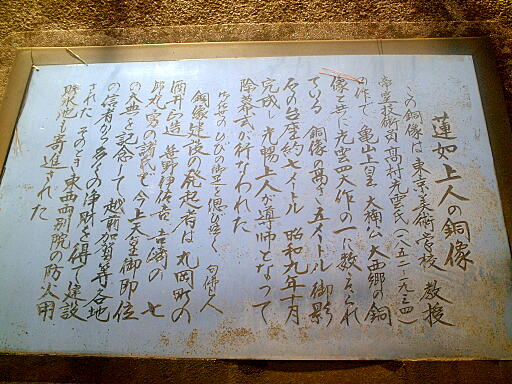 蓮如上人の銅像
この銅像は東京美術学校教授
帝室技芸員高村光雲氏(一八五二〜一九三四)
の作で 亀山上皇 大楠公 大西郷の銅
像と共に光雲四大作の一に数えられ
ている 銅像の高さ五メートル 御影
石の台座約七メートル 昭和九年十月
完成し光暢上人が導師となって
除幕式が行なわれた
銅像建設の発起者は丸岡町の
酒井 吉崎の 七
郎丸 の諸氏で 今上天皇御即位
の大典を記念して 越前加賀等各地
の信者から多くの浄財を得て建設
された そのとき東西両別院の防火用
貯水池も寄進された